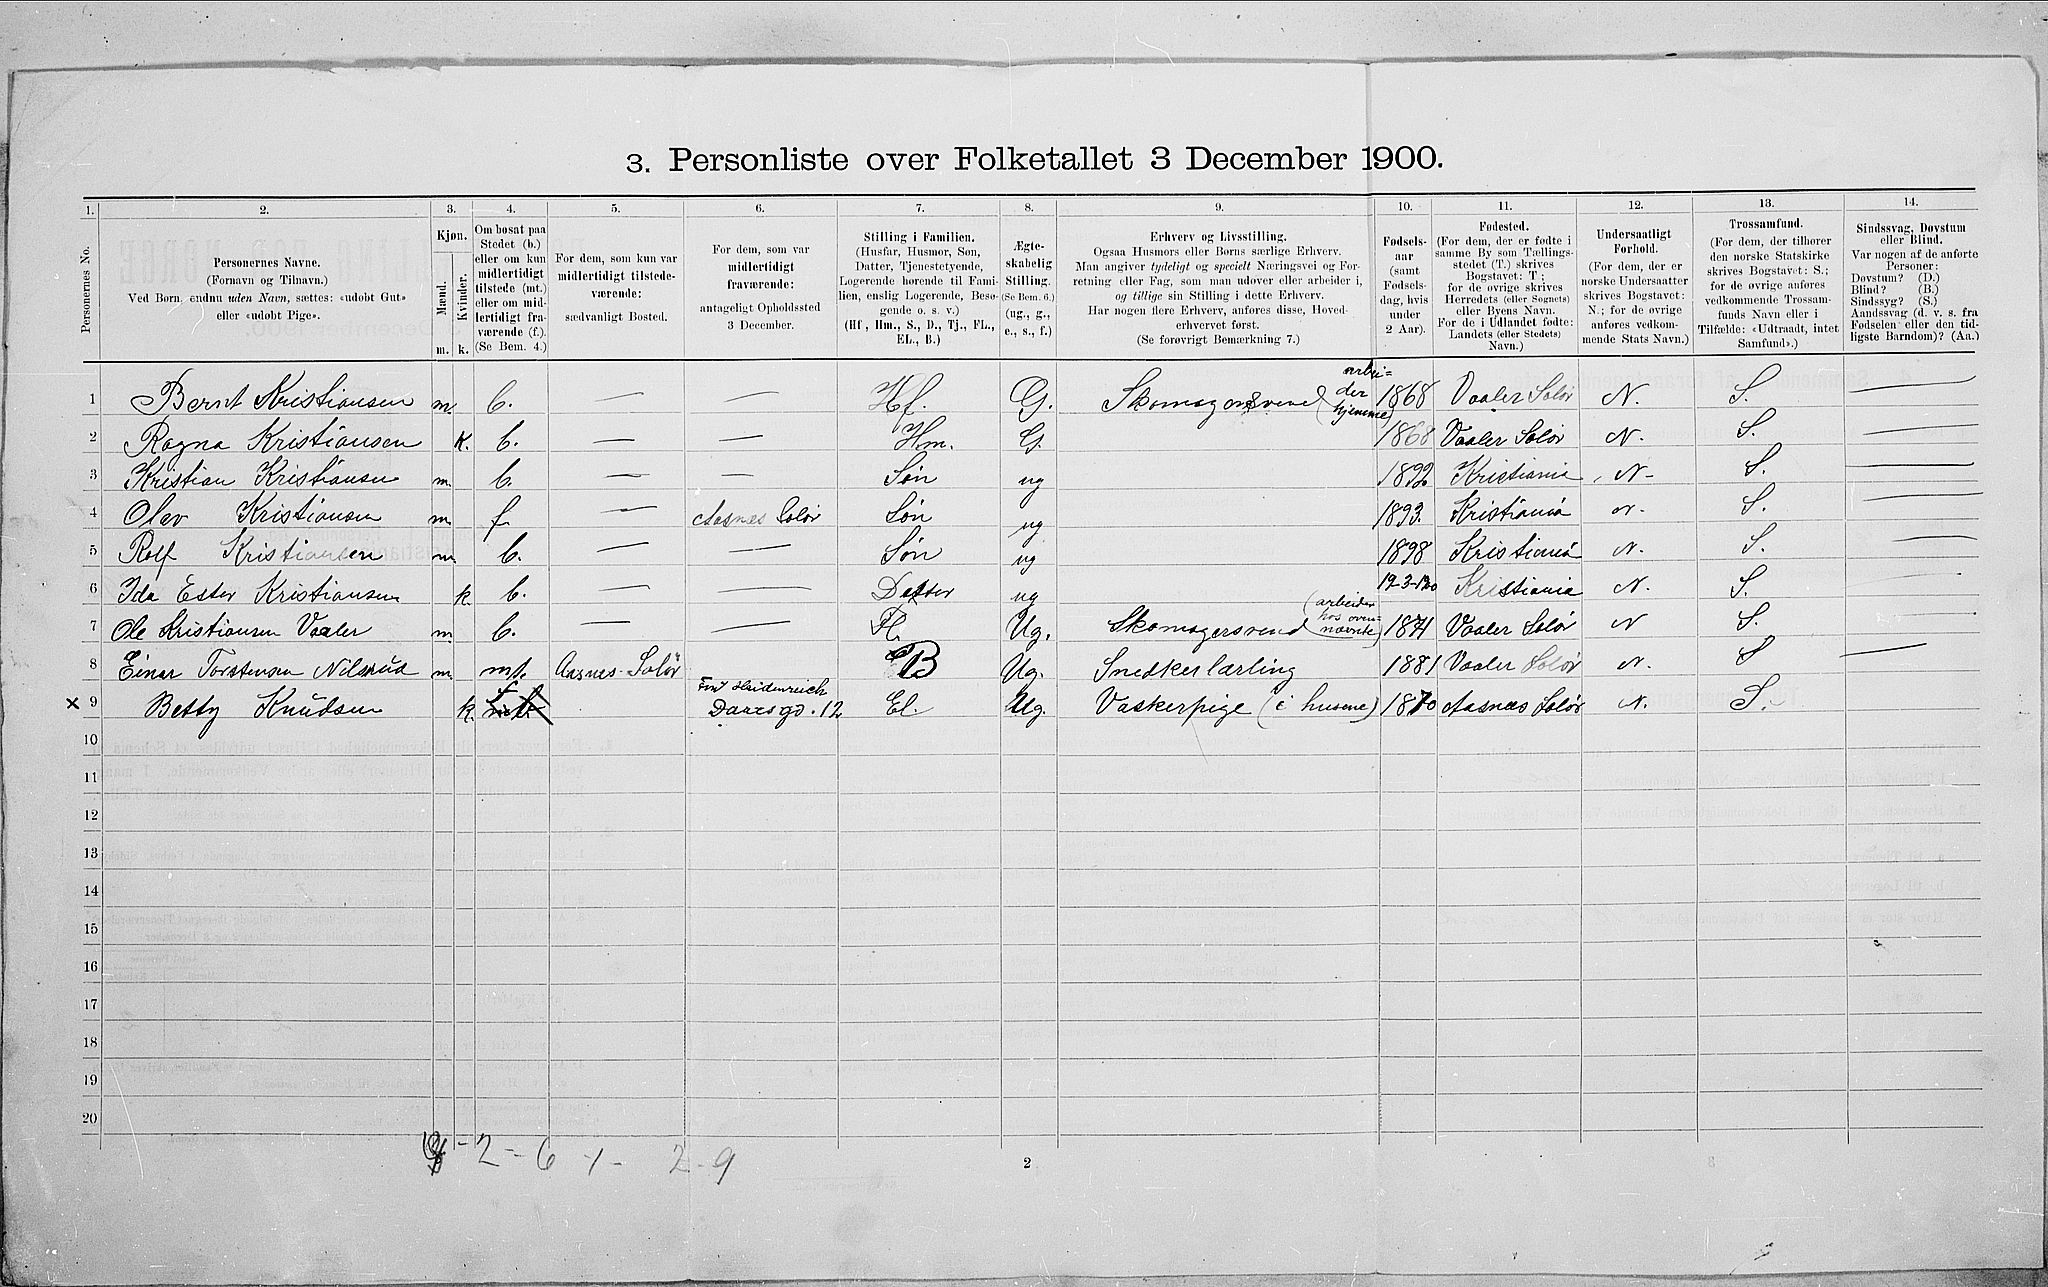 3. Personliste over Folketallet 3 December 1900.
1. 2. 3. 4. 5. 6. 7. 8. 9. 10. 11. 12. 13. 14.
Personernes No.
Personernes Navne.
(Fornavn og Tilnavn.)
Ved Børn, endnu uden Navn, sættes: «udøbt Gut»
eller «udøbt Pige».
Kjøn.
Mænd.
Kvinder.
m. k.
Om bosat paa
Stedet (b.)
eller om kun
midlertidigt
tilstede (mt.)
eller om mid-
lertidigt fra-
værende (f.)
(Se Bem. 4.)
For dem, som kun var
midlertidigt tilstede-
værende:
sædvanligt Bosted.
For dem, som var
midlertidigt
fraværende:
antageligt Opholdssted
3 December.
Stilling i Familien.
(Husfar, Husmor, Søn,
Datter, Tjenestetyende,
Logerende hørende til Fami-
lien, enslig Logerende, Besø-
gende o. s. v.)
(Hf, Hm., S., D., Tj., FL.,
EL., B.)
Ægte-
skabelig
Stilling.
(Se Bem. 6.)
(ug., g.,
e., s., f.)
Erhverv og Livsstilling.
Ogsaa Husmors eller Børns særlige Erhverv.
Man angiver tydeligt og specielt Næringsvei og For-
retning eller Fag, som man udøver eller arbeider i,
og tillige sin Stilling i dette Erhverv.
Har nogen flere Erhverv, anføres disse, Hoved-
erhvervet først.
(Se forøvrigt Bemærkning 7.)
Fødsels-
aar
(samt
Fødsels-
dag, hvis
under
2 Aar).
Fødested.
(For dem, der er fødte i
samme By som Tællings-
stedet (T.) skrives
Bogstavet: T;
for de øvrige skrives
Herredets (eller Sognets)
eller Byens Navn.
For de i Udlandet fødte:
Landets (eller Stedets)
Navn.)
Undersaatligt
Forhold.
(For dem, der er
norske Undersaatter
skrives Bogstavet:
N.; for de øvrige
anføres vedkom-
mende Stats Navn.)
Trossamfund.
(For dem, der tilhører
den norske Statskirke
skrives Bogstavet: S.;
for de øvrige anføres
vedkommende Trossam-
funds Navn eller i
Tilfælde: «Udtraadt, intet
Samfund».)
Sindssvag, Døvstum
eller Blind.
Var nogen af de anførte
Personer:
Døvstum? (D.)
Blind? (B.)
Sindssyg? (S.)
Aandssvag (d. v. s. fra
Fødselen eller den tid-
ligste Barndom)? (Aa.)
1 Bernt Kristiansen m. b. — — Hf. G. Skomagersvend (arbei=der hjemme) 1868 Vaaler Solør N. S. —
2 Ragna Kristiansen K. b. — — Hm. G. 1868 Vaaler Solør N. S. —
3 Kristian Kristiansen m. b. — — Søn ug 1892 Kristiania N- S. —
4 Olav Kristiansen m. f. — Aasnes Solør Søn ug 1893. Kristiania N. S. —
5 Rolf Kristiansen m. b. — — Søn ug 1898 Kristiania N. S. —
6 Ida Ester Kristiansen k. b. — — Datter ug 12-3-1900 Kristiania N. S. —
7 Ole Kristiansen Vaaler m. b. — — Fl. Ug. Skomagersvend (arbeider hos oven-nævnte) 1871 Vaaler Solør N S.
8 Einar Torstensen Nilsrud m. mt. Aasnes-Solør B Ug. Snedkerlærling 1881 Vaaler Solør N. S —
x 9 Betty Knudsen k. f Daaesgd. 12 El. Ug. Vaskerpige (i husene) 1870 Aasnæs Solør N. S.
10
11
12
13
14
15
16
17
18
19
20
2 - 6 1 - 2 - 9
2